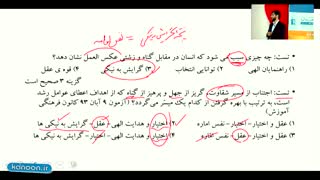 نتیجه گرایش به نیکی = نفس لوامه
• تست: چه چیزی سبب می شود که انسان در مقابل گناه و زشتی عکس العمل نشان دهد؟
۱) راهنمایان الهی ۲) توانایی انتخاب ۳) گرایش به نیکی ۴) قوه ی عقل
گزینه ۳ صحیح است
• تست: اجتناب از مسیر شقاوت، گریز از جهل و پرهیز از گناه که از اهداف اعطای عوامل رشد
است، به ترتیب با بهره گرفتن از کدام یک میسر می‌گردد؟ (آزمون ۹ آبان ۹۳ کانون فرهنگی
آموزش)
۱) عقل و اختیار - اختیار - نفس اماره ۲) اختیار و هدایت الهی - عقل - گرایش به نیکی ها
۳) عقل و اختیار - عقل - نفس اماره ۴) اختیار و هدایت الهی - اختیار - گرایش به نیکی ها
kdnoon.ir
kdnoon.ir